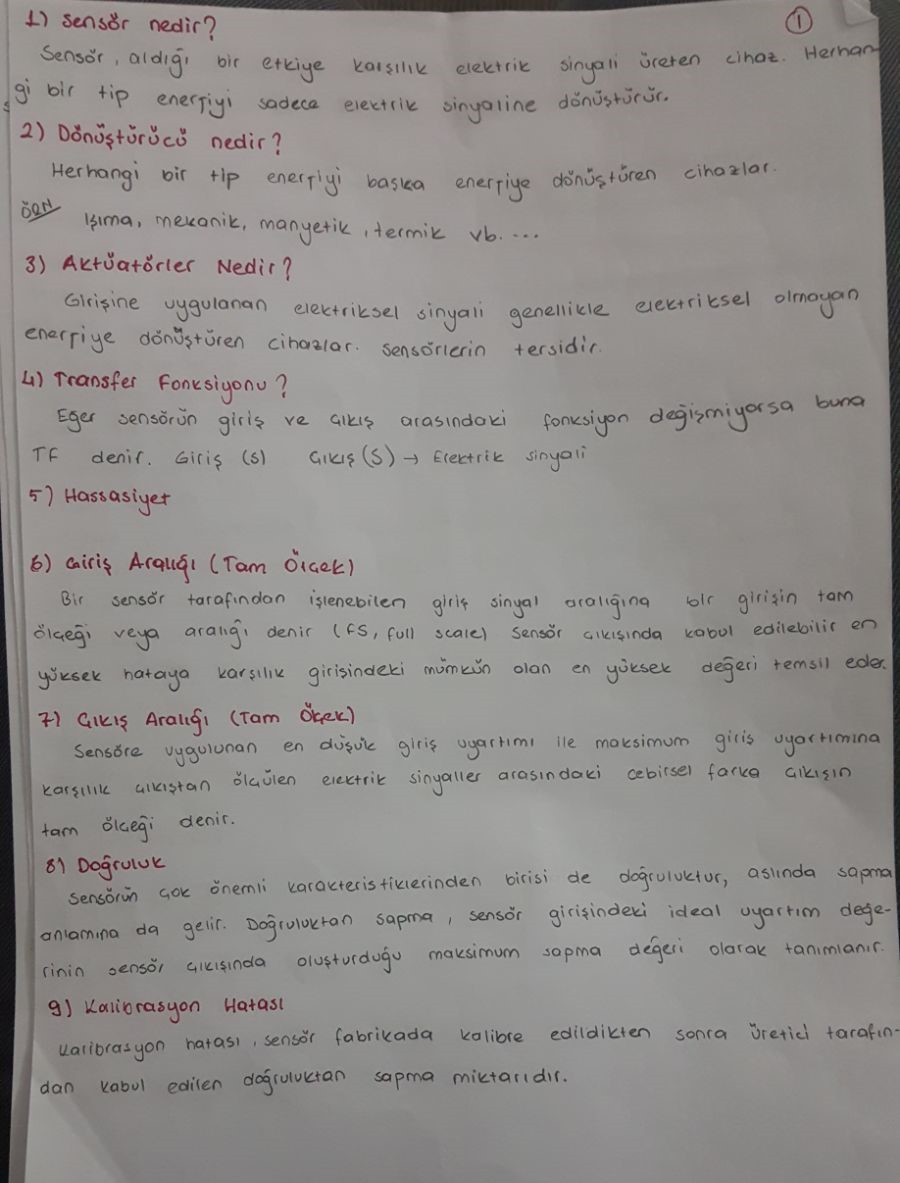 1) Sensör nedir?
①
Sensör, aldığı bir etkiye karşılık elektrik sinyali üreten cihaz. Herhan
gi bir tip enerjiyi sadece elektrik sinyaline dönüştürür.
2) Dönüştürücü nedir?
Herhangi bir tip enerjiyi başka enerjiye dönüştüren cihazlar.
ÖRN Işıma, mekanik, manyetik, termik vb. ...
3) Aktüatörler Nedir?
Girişine uygulanan elektriksel sinyali genellikle elektriksel olmayan
enerjiye dönüştüren cihazlar. Sensörlerin tersidir.
4) Transfer Fonksiyonu?
Eğer sensörün giriş ve çıkış arasındaki fonksiyon değişmiyorsa buna
TF denir. Giriş (s) Çıkış (S) → Elektrik sinyali
5) Hassasiyet
6) Giriş Aralığı (Tam Ölçek)
Bir sensör tarafından işlenebilen giriş sinyal aralığına bir girişin tam
ölçeği veya aralığı denir (FS, full scale) Sensör çıkışında kabul edilebilir en
yüksek hataya karşılık girişindeki mümkün olan en yüksek değeri temsil eder.
7) Çıkış Aralığı (Tam Ölçek)
Sensöre uygulunan en düşük giriş uyartımı ile maksimum giriş uyartımına
karşılık çıkıştan ölçülen elektrik sinyaller arasındaki cebirsel farka çıkışın
tam ölçeği denir.
8) Doğruluk
Sensörün çok önemli karakteristiklerinden birisi de doğruluktur, aslında sapma
anlamına da gelir. Doğruluktan sapma, sensör girişindeki ideal uyartım değe-
rinin sensör çıkışında oluşturduğu maksimum sapma değeri olarak tanımlanır.
9) Kalibrasyon Hatası
Kalibrasyon hatası, sensör fabrikada kalibre edildikten sonra üretici tarafın-
dan kabul edilen doğruluktan sapma miktarıdır.